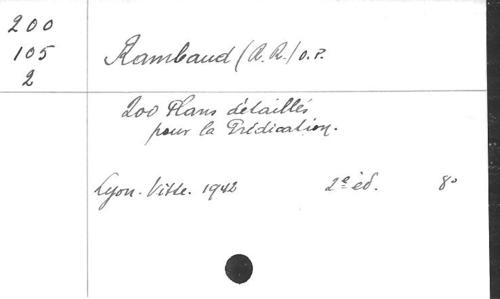 200
105
2
Rambaud (R.R.) O.P.
200 Plans détaillés
pour la Prédication.
Lyon. Vitte. 1942 2e éd. 8°